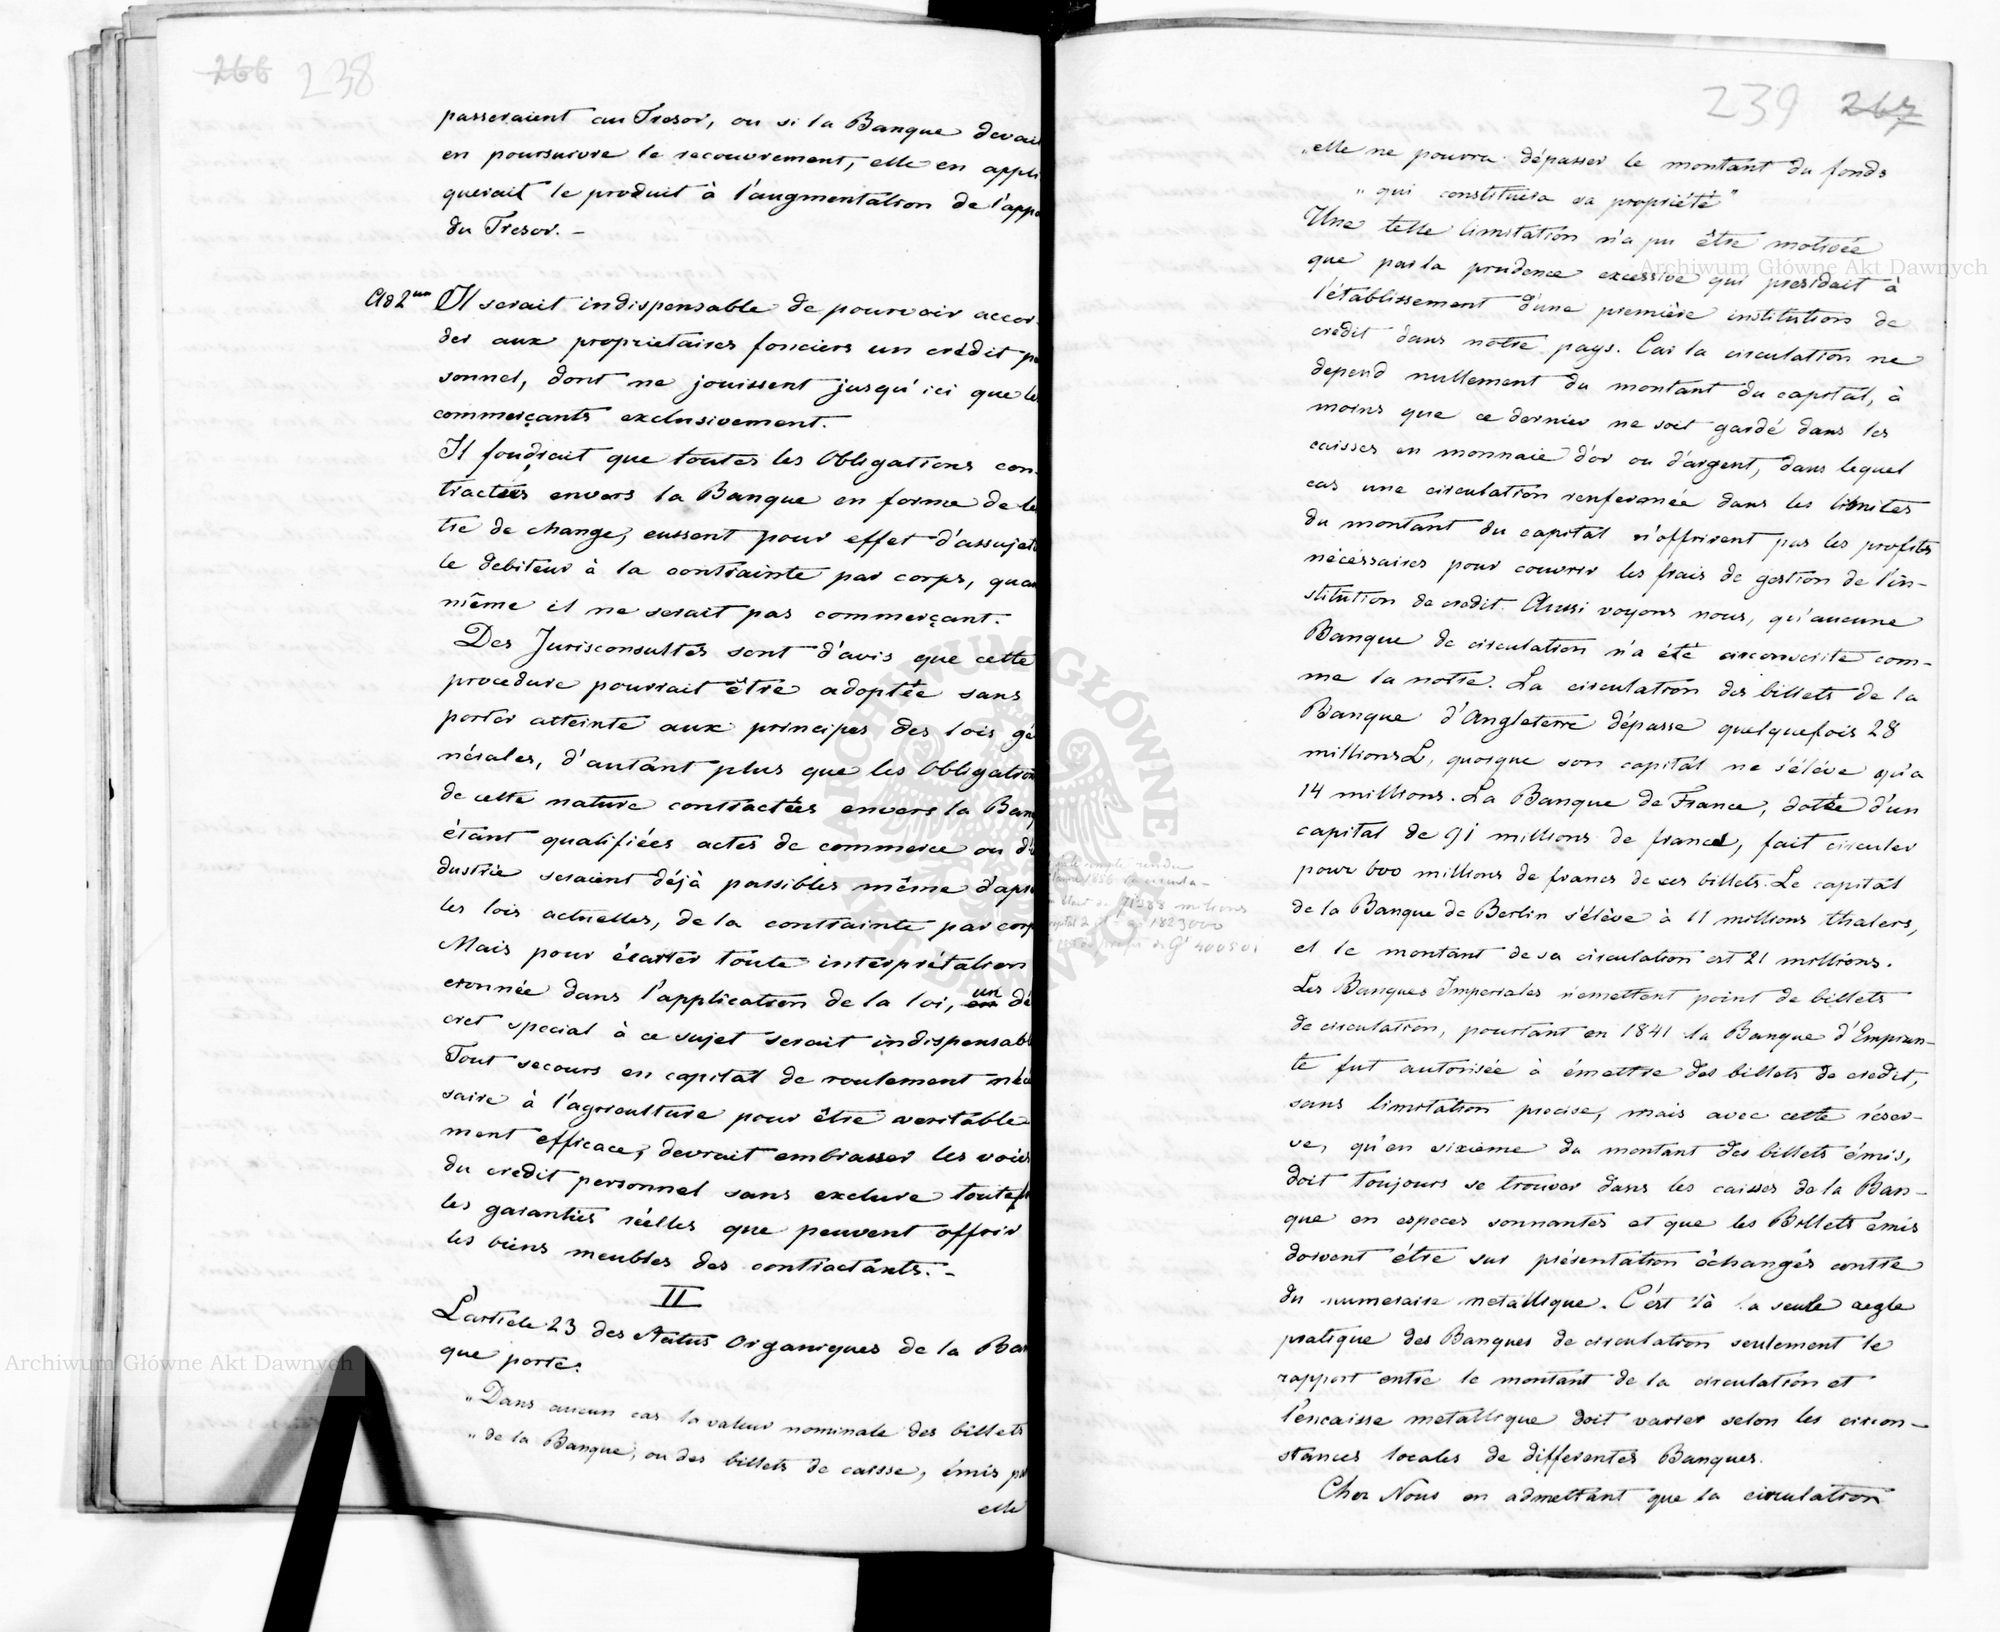 266 238
passeraient au Tresor, ou si la Banque devait
en poursuivre le recouvrement, elle en appli
querait le produit à l'augmentation de l'appo
du Tresor. —
Ad 2um Il serait indispensable de pouvoir accor-
der aux proprietaires fonciers un crédit per
sonnel, dont ne jouissent jusqu'ici que les
commerçants exclusivement.
Il foudrait que toutes les Obligations con-
tractées envers la Banque en forme de let
tre de change, eussent pour effet d'assujet
le debiteur à la contrainte par corps, quan
même il ne serait pas commerçant.
Des Jurisconsultes sont d'avis que cette
procedure pourrait être adoptée sans
porter atteinte aux principes des lois gé
nérales, d'autant plus que les Obligation
de cette nature contractées envers la Banq
étant qualifiées actes de commerce ou d'in
dustrie seraient déjà passibles même d'apr
les lois actuelles, de la contrainte par corp
Mais pour écarter toute interprétation
eronnée dans l'application de la loi, un dé
cret special à ce sujet serait indispensabl
Tout secours en capital de roulement néce
saire à l'agriculture pour être veritable
ment efficace, devrait embrasser les voies
du credit personnel sans exclure toutef
les garanties réelles que peuvent offrir
les biens meubles des contractants. —
II
L'article 23 des Statuts Organiques de la Ban
que porte:
„Dans aucun cas la valeur nominale des billets
„de la Banque, ou des billets de caisse, émis pa
elle
239 267
„elle ne pourra dépasser le montant du fonds
„qui constituera sa propriété"
Une telle limitation n'a pu être motivée
que par la prudence excessive qui presidait à
l'établissement d'une première institution de
crédit dans notre pays. Car la circulation ne
depend nullement du montant du capital, à
moins que ce dernier ne soit gardé dans les
caisses en monnaie d'or ou d'argent, dans lequel
cas une circulation renfermée dans les limites
du montant du capital n'offrirent pas les profits
nécéssaires pour couvrir les frais de gestion de l'in-
stitution de credit. Aussi voyons nous, qu'aucune
Banque de circulation n'a été circonscrite com-
me la notre. La circulation des billets de la
Banque d'Angleterre dépasse quelquefois 28
millions L, quoique son capital ne s'élève qu'a
14 millions. La Banque de France, dotée d'un
capital de 91 millions de francs, fait circuler
pour 600 millions de francs de ces billets. Le capital
de la Banque de Berlin s'élève à 11 millions thalers,
et le montant de sa circulation est 21 millions.
Les Banques Imperiales n'emettent point de billets
de circulation, pourtant en 1841 la Banque d'Emprun-
te fut autorisée à émettre des billets de credit,
sans limitation precise, mais avec cette réser-
ve, qu'en sixieme du montant des billets émis,
doit toujours se trouver dans les caisses de la Ban-
que en especes sonnantes et que les Billets émis
doivent être sur présentation échangés contre
du numeraire metallique. C'est là la seule regle
pratique des Banques de circulation seulement le
rapport entre le montant de la circulation et
l'encaisse metallique doit varier selon les circon-
stances locales de differentes Banques.
Chez Nous en admettant que la circulation
Archiwum Główne Akt Dawnych
Archiwum Główne Akt Dawnych